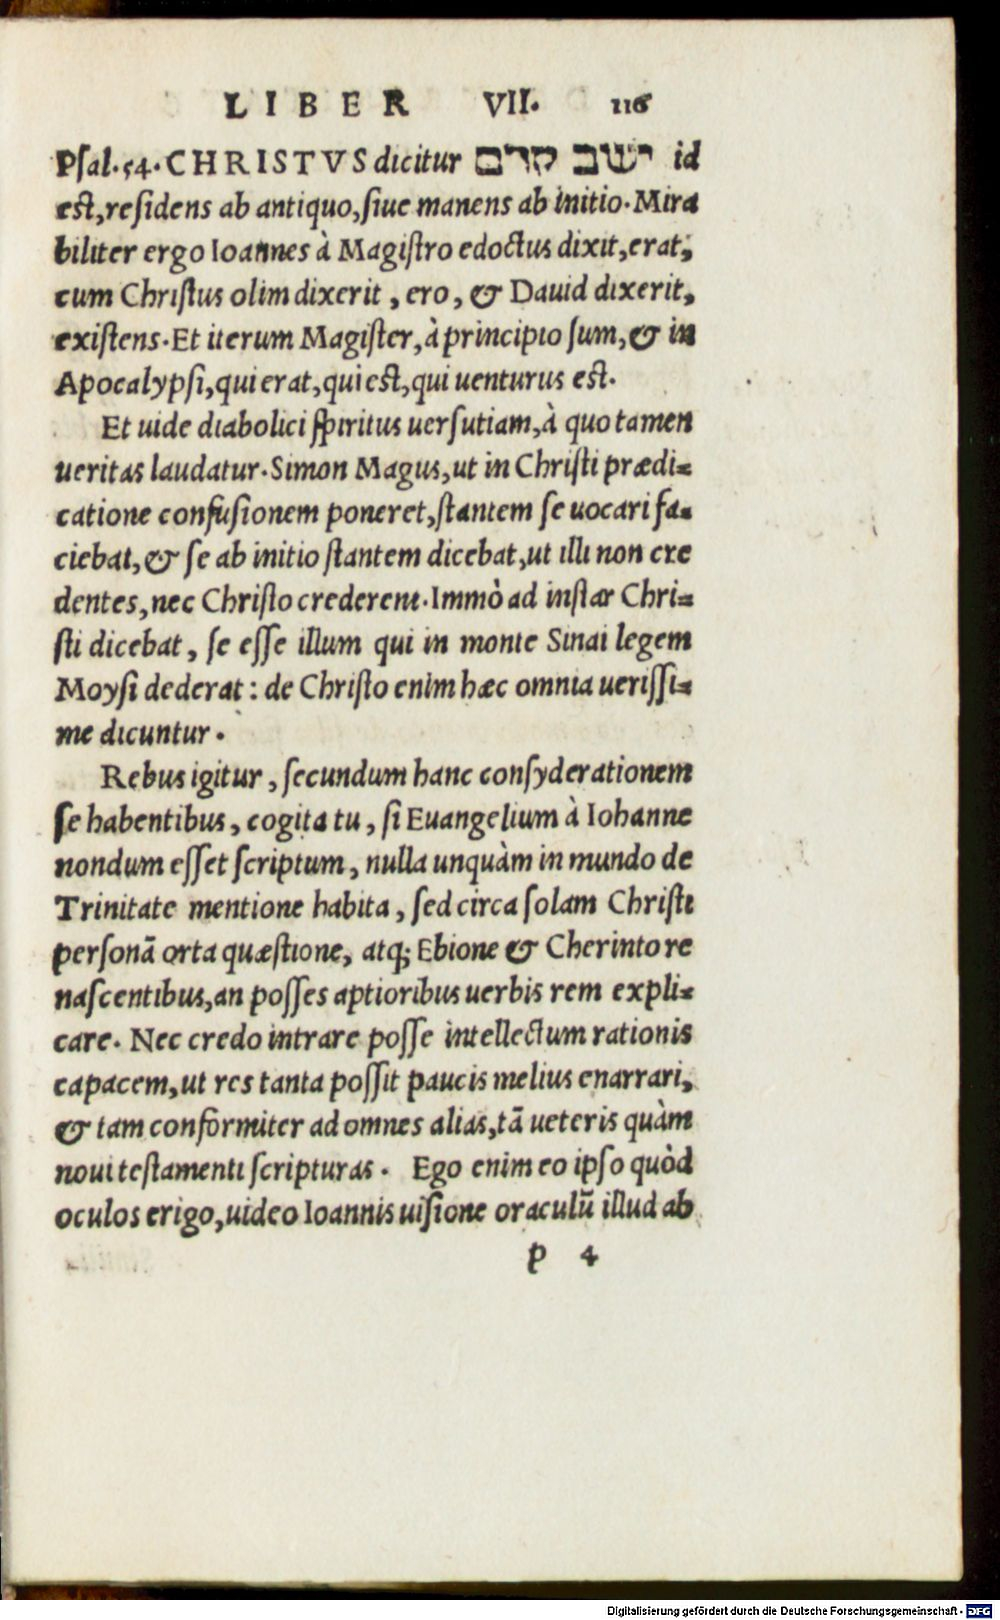 LIBER VII. 116
Psal.54. CHRISTVS dicitur ישב קדם id
est, residens ab antiquo, siue manens ab initio. Mira
biliter ergo Ioannes à Magistro edoctus dixit, erat,
cum Christus olim dixerit, ero, & Dauid dixerit,
existens. Et iterum Magister, à principio sum, & in
Apocalypsi, qui erat, qui est, qui uenturus est.
Et uide diabolici spiritus uersutiam, à quo tamen
ueritas laudatur. Simon Magus, ut in Christi prædi=
catione confusionem poneret, stantem se uocari fa=
ciebat, & se ab initio stantem dicebat, ut illi non cre
dentes, nec Christo crederent. Immò ad instar Chri=
sti dicebat, se esse illum qui in monte Sinai legem
Moysi dederat: de Christo enim hæc omnia uerissi=
me dicuntur.
Rebus igitur, secundum hanc consyderationem
se habentibus, cogita tu, si Euangelium à Iohanne
nondum esset scriptum, nulla unquàm in mundo de
Trinitate mentione habita, sed circa solam Christi
personã orta quæstione, atq; Ebione & Cherinto re
nascentibus, an posses aptioribus uerbis rem expli=
care. Nec credo intrare posse intellectum rationis
capacem, ut res tanta possit paucis melius enarrari,
& tam conformiter ad omnes alias, tã ueteris quàm
noui testamenti scripturas. Ego enim eo ipso quòd
oculos erigo, uideo Ioannis uisione oraculũ illud ab
p 4
Digitalisierung gefördert durch die Deutsche Forschungsgemeinschaft - DFG